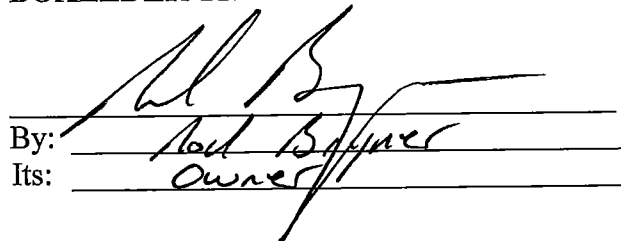 By: Rod Bryner
Its: Owner